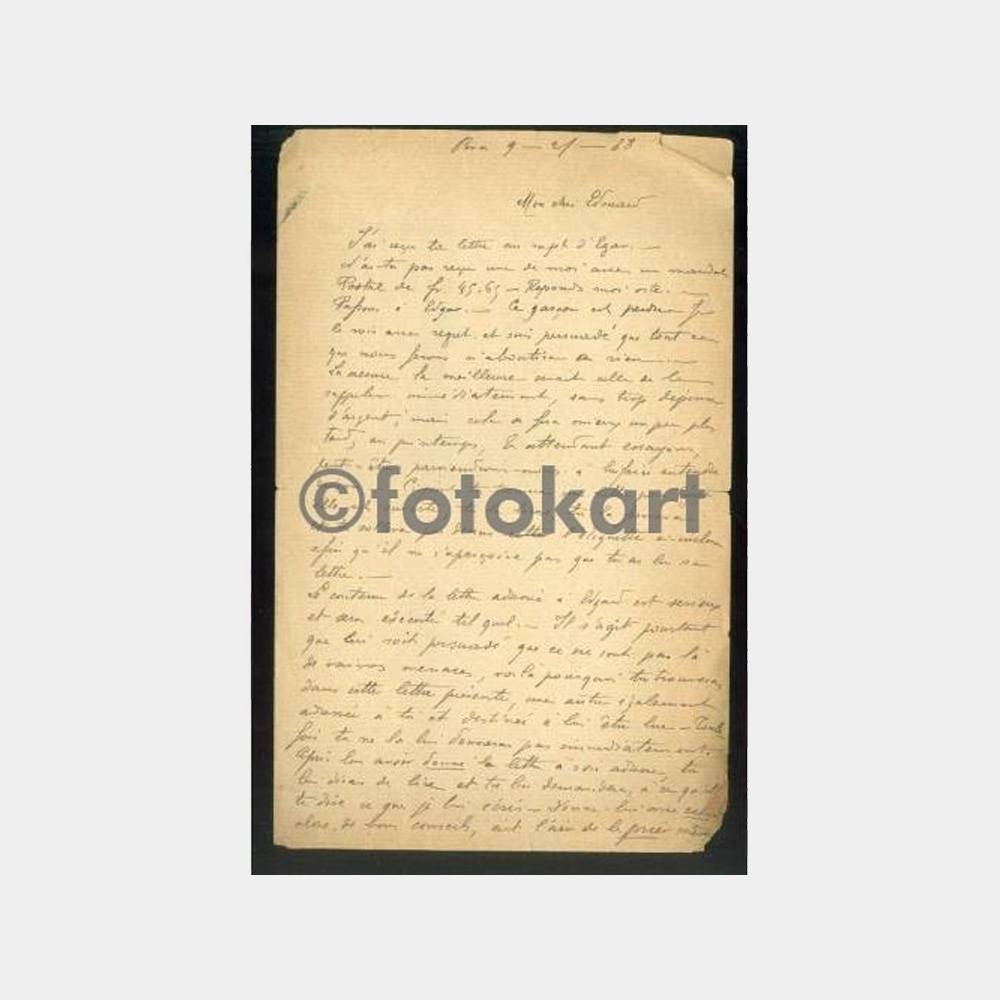 Pera 9 – 2/ – 83
Mon cher Edouard
J'ai reçu ta lettre au sujet d'Egar. —
N'as-tu pas reçu une de moi avec un mandat
Postal de fr. 45.65 — Reponds moi vite. —
Passons à Edgar. — Ce garçon est perdu
le vois avec regret et suis persuadé que tout ce
que nous ferons n'aboutira à rien. —
La mesure la meilleure serait celle de le
rappeler immédiatement, sans trop dépenser
d'argent; mais cela se fera mieux un peu plus
tard, au printemps, En attendant essayons,
peut-être parviendrons-nous à lui faire entendre
©fotokart
l'étiquette ci-inclus
afin qu'il ne s'aperçoive pas que tu as lu sa
lettre. —
Le contenu de la lettre adressée à Edgard est serieux
et sera éxécuté tel quel. — Il s'agit pourtant
que lui soit persuadé que ce ne sont pas là
de vaines menaces, voilà pourquoi tu trouveras
dans cette lettre présente, une autre également
adressée à toi et destinée à lui être lue — Toute
fois tu ne la lui donneras pas immédiatement.
Après lui avoir donné la lettre à son adresse, tu
lui diras de lire et tu lui demandera, à ce qu'il
te dise ce que je lui écris — Donne lui avec
alors de bons conseils, ait l'air de le forcer